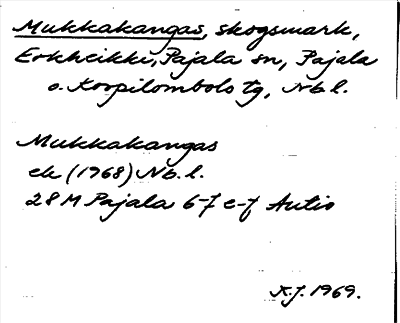 Mukkakangas, skogsmark,
Erkheikki, Pajala sn, Pajala
o. Korpilombolo tg, Nb. l.
Mukkakangas
ek (1968) Nb. l.
28 M Pajala 6-7 e-f Autio
K.J. 1969.